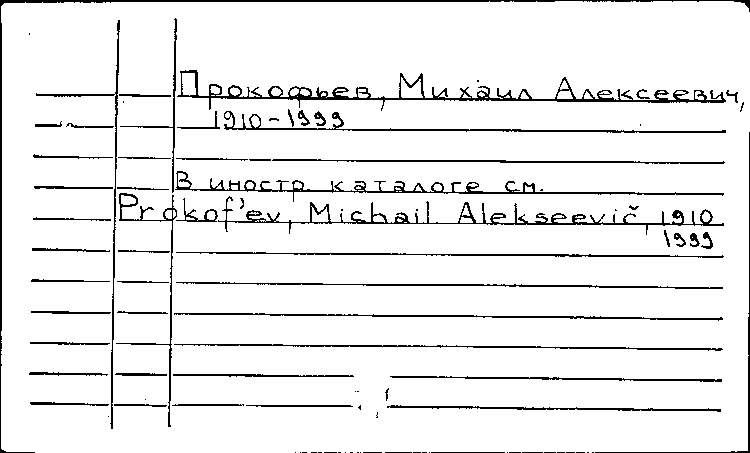 Прокофьев, Михаил Алексеевич,
1910-1999
В иностр. каталоге см.
Prokof'ev, Michail Alekseevič, 1910
1999